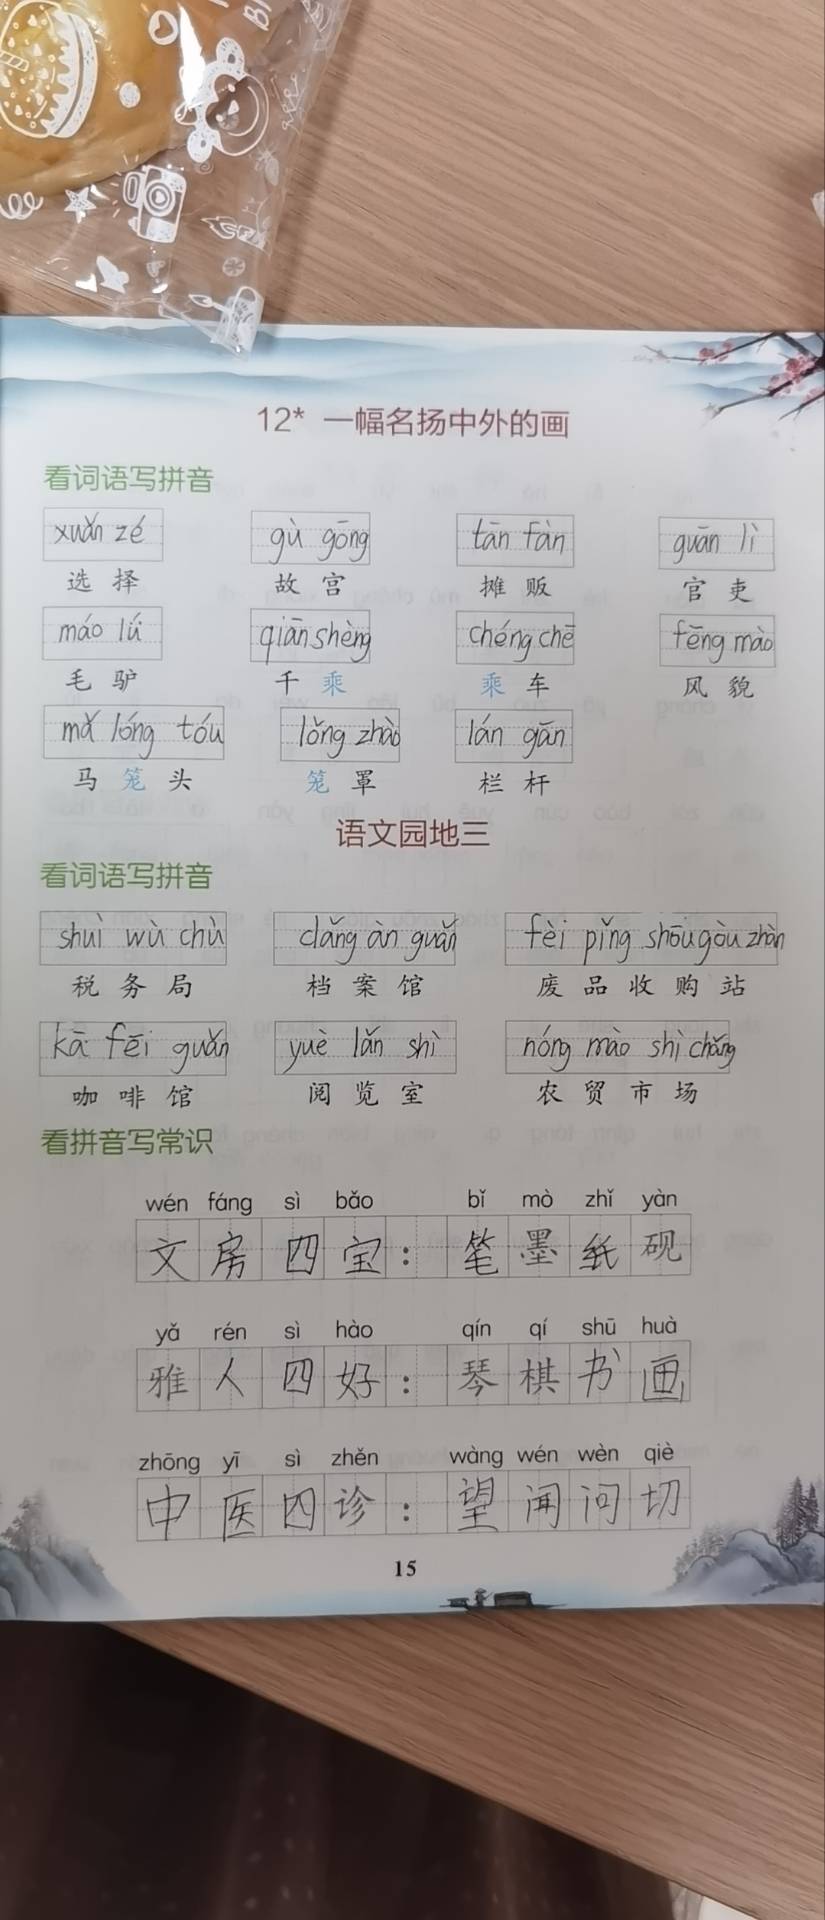 12* 一幅名扬中外的画
看词语写拼音
xuǎn zé gù gōng tān fàn guān lì
选择 故宫 摊贩 官吏
máo lǘ qiān shèng chéng chē fēng mào
毛驴 千乘 乘车 风貌
mǎ lóng tóu lǒng zhào lán gān
马笼头 笼罩 栏杆
语文园地三
看词语写拼音
shuì wù chù dǎng àn guǎn fèi pǐng shōu gòu zhàn
税务局 档案馆 废品收购站
kā fēi guǎn yuè lǎn shì nóng mào shì chǎng
咖啡馆 阅览室 农贸市场
看拼音写常识
wén fáng sì bǎo bǐ mò zhǐ yàn
文房四宝：笔墨纸砚
yǎ rén sì hào qín qí shū huà
雅人四好：琴棋书画
zhōng yī sì zhěn wàng wén wèn qiè
中医四诊：望闻问切
15